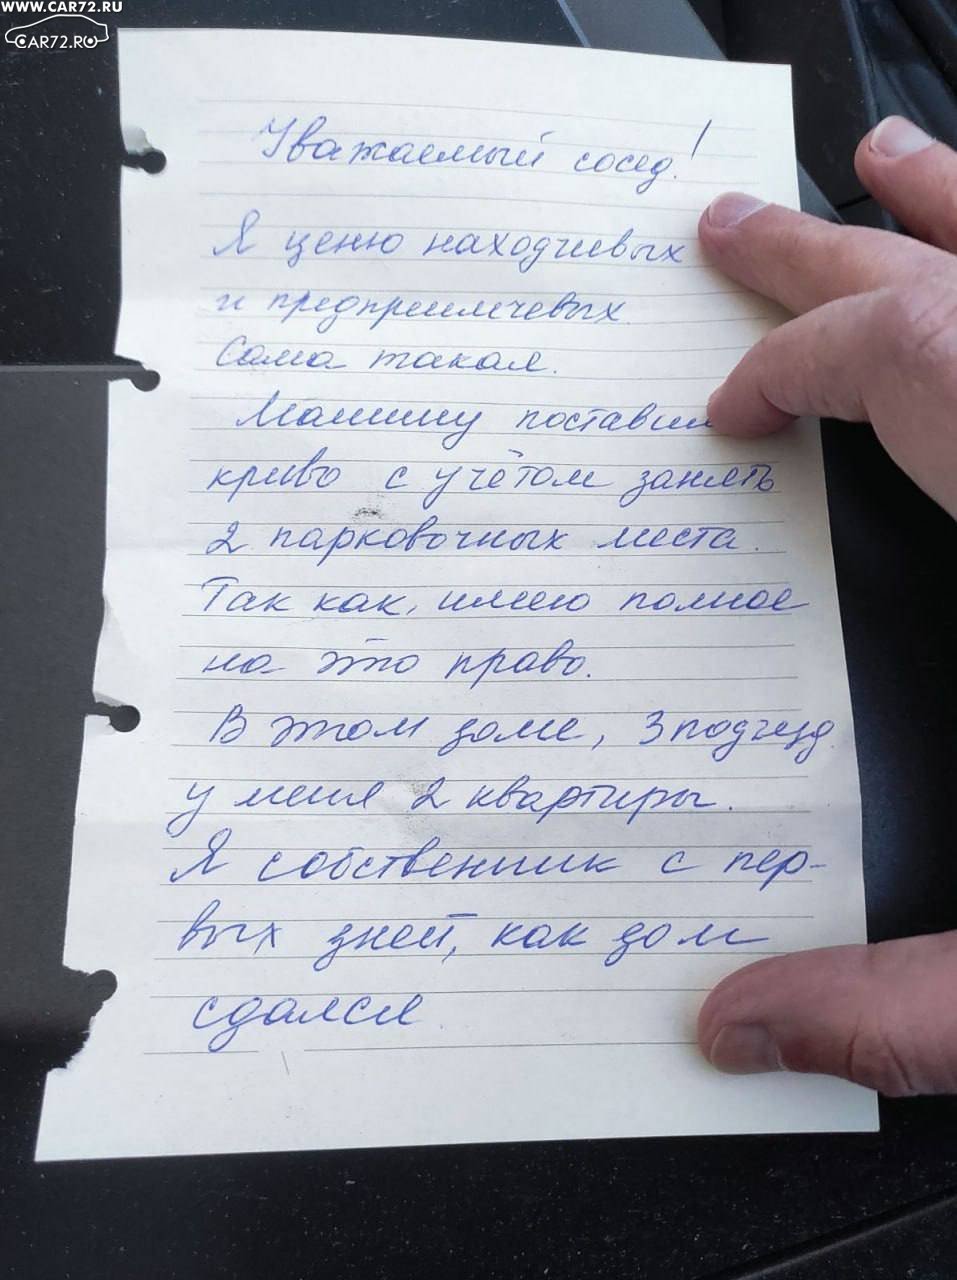 WWW.CAR72.RU
CAR72.RU
Уважаемый сосед!
Я ценю находчивых
и предприимчевых.
Сама такая.
Машину поставила
криво с учётом занять
2 парковочных места.
Так как, имею полное
на это право.
В этом доме, 3 подъезд
у меня 2 квартиры.
Я собственник с пер-
вых дней, как дом
сдался.